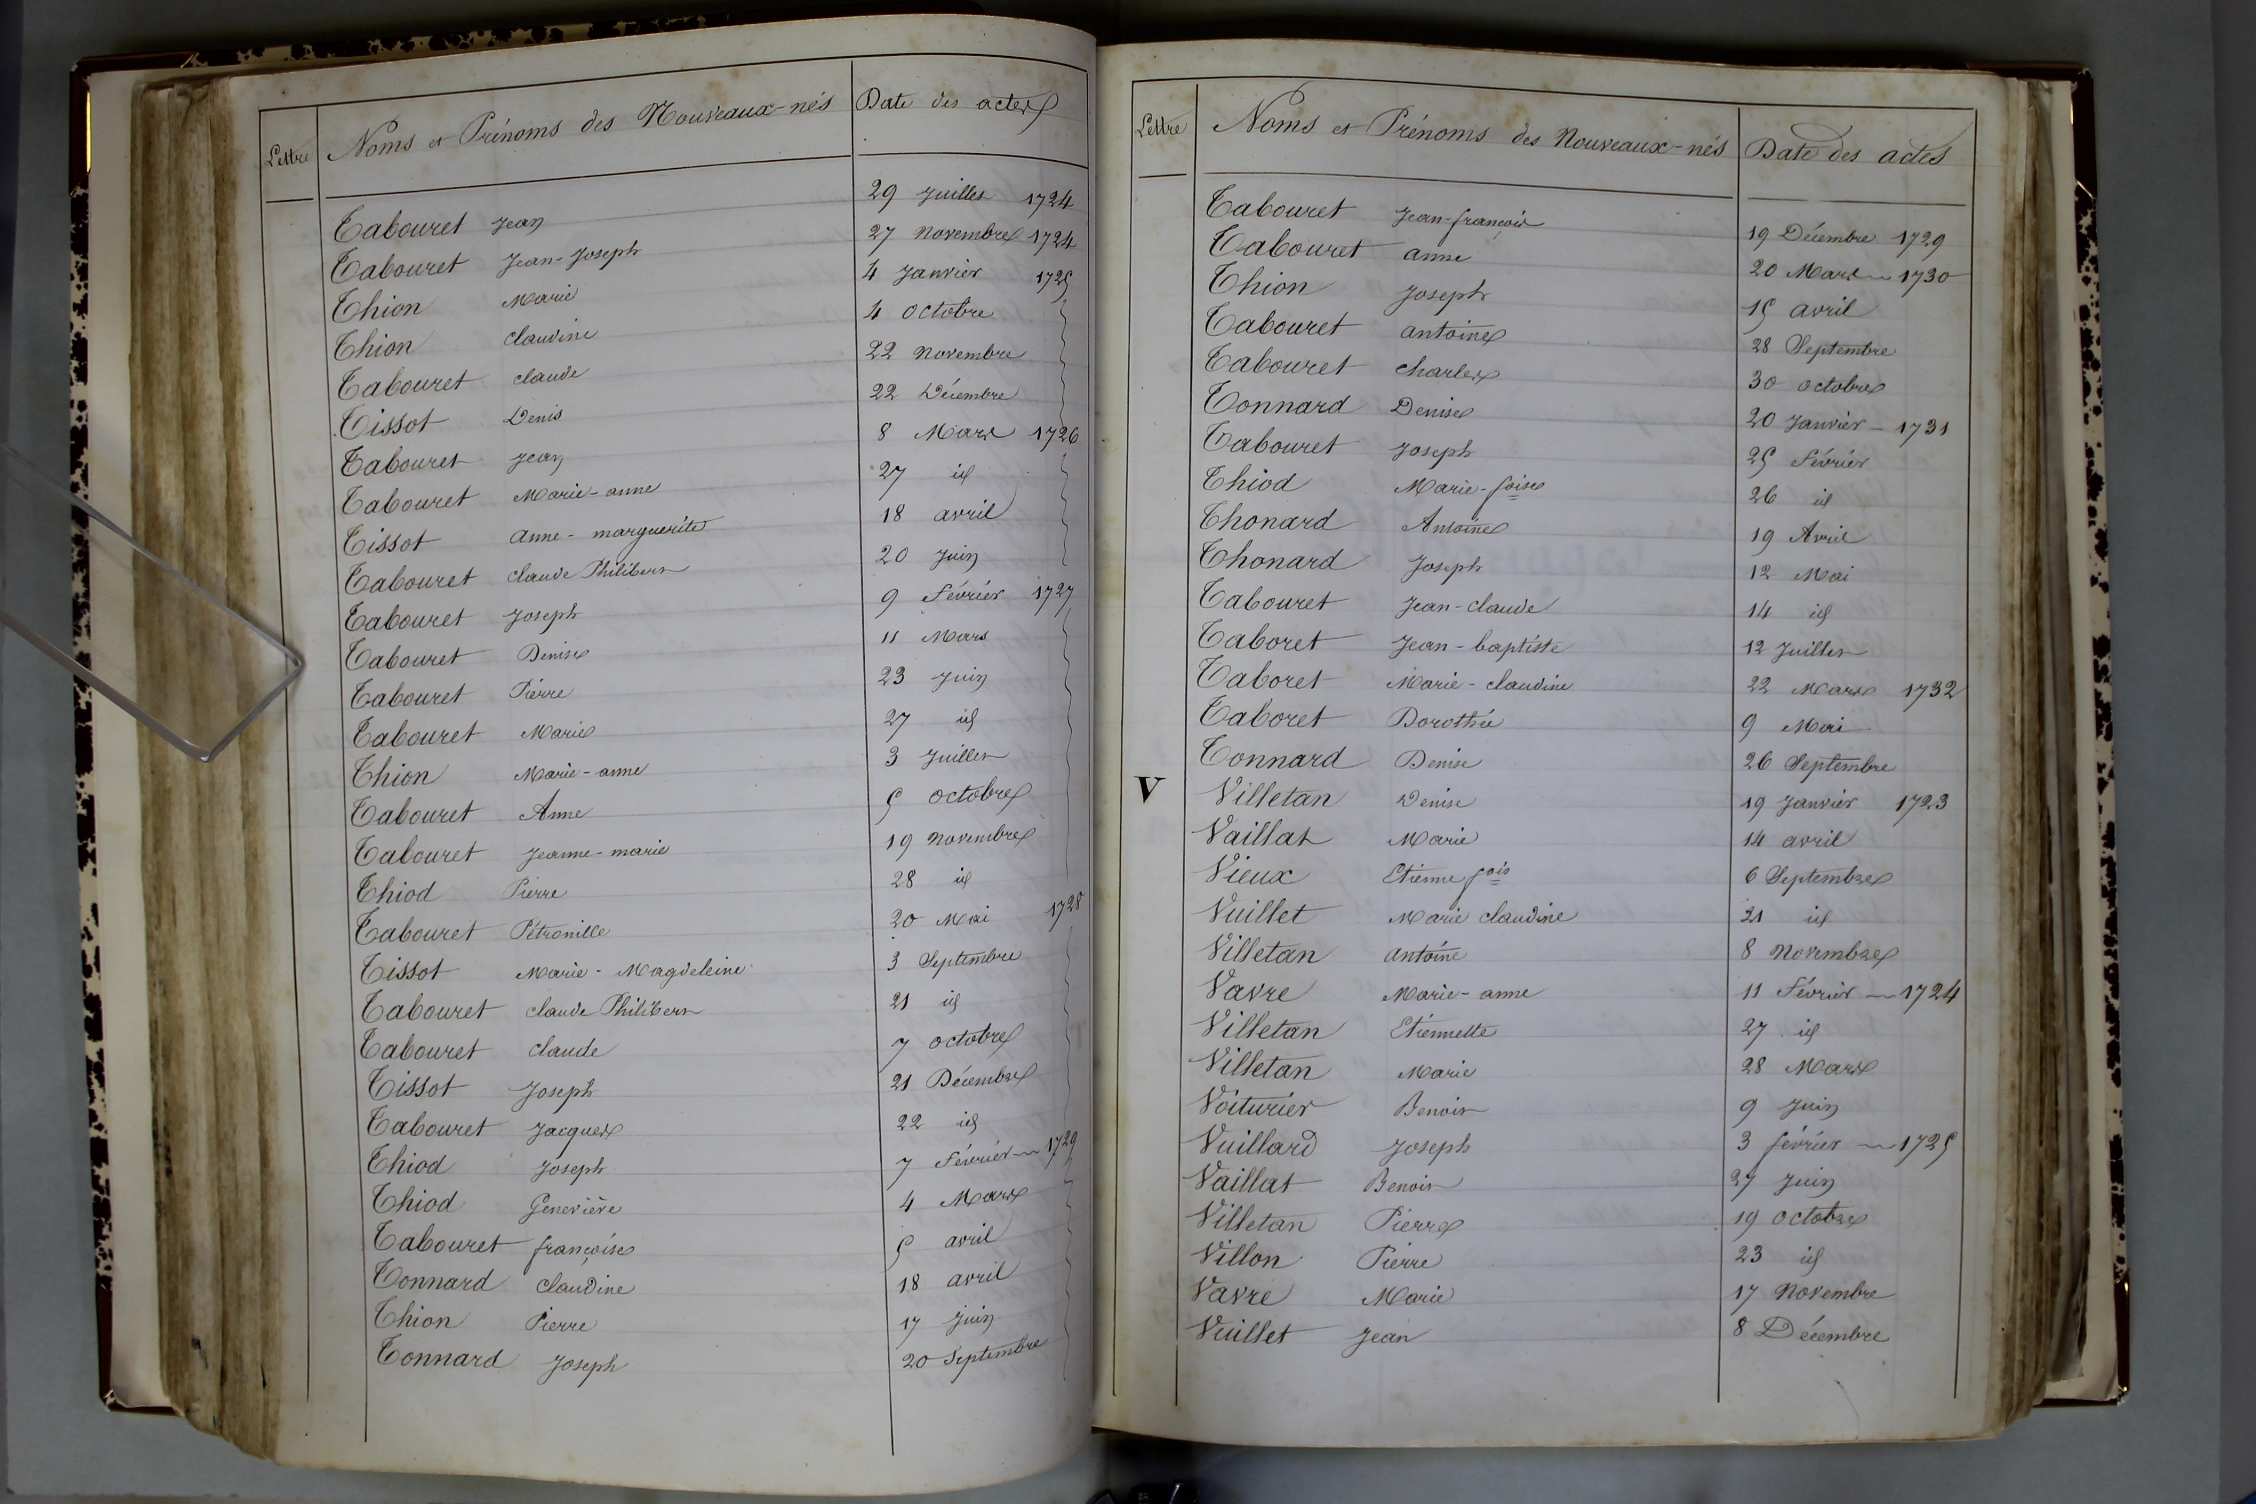 Lettre Noms et Prénoms des Nouveaux-nés Date des actes
Tabouret Jean 29 Juillet 1724
Tabouret Jean-Joseph 27 Novembre 1724
Thion Marie 4 Janvier 1725
Thion Claudine 4 Octobre
Tabouret Claude 22 Novembre
Tissot Denis 22 Décembre
Tabouret Jean 8 Mars 1726
Tabouret Marie-anne 27 id
Tissot Anne-marguerite 18 avril
Tabouret Claude Philibert 20 Juin
Tabouret Joseph 9 Février 1727
Tabouret Denise 11 Mars
Tabouret Pierre 23 Juin
Tabouret Marie 27 id
Thion Marie-anne 3 Juillet
Tabouret Anne 5 Octobre
Tabouret Jeanne-marie 19 Novembre
Thiod Pierre 28 id
Tabouret Pétronille 20 Mai 1728
Tissot Marie-Magdeleine 3 Septembre
Tabouret Claude Philibert 21 id
Tabouret Claude 7 Octobre
Tissot Joseph 21 Décembre
Tabouret Jacques 22 id
Thiod Joseph 7 Février 1729
Thiod Geneviève 4 Mars
Tabouret françoise 5 avril
Tonnard Claudine 18 avril
Thion Pierre 17 Juin
Tonnard Joseph 20 Septembre
Lettre Noms et Prénoms des Nouveaux-nés Date des actes
Tabouret Jean-françois 19 Décembre 1729
Tabouret anne 20 Mars 1730
Thion Joseph 15 avril
Tabouret antoine 28 Septembre
Tabouret Charles 30 octobre
Tonnard Denise 20 Janvier 1731
Tabouret Joseph 25 Février
Thiod Marie-foise 26 id
Thonard Antoine 19 Avril
Thonard Joseph 12 Mai
Tabouret Jean-Claude 14 id
Taboret Jean-baptiste 12 Juillet
Taboret Marie-Claudine 22 Mars 1732
Taboret Dorothée 9 Mai
Tonnard Denise 26 Septembre
V Villetan Denise 19 Janvier 1723
Vaillat Marie 14 avril
Vieux Etienne fois 6 Septembre
Vuillet Marie Claudine 21 id
Villetan antoine 8 Novembre
Vavre Marie-anne 11 Février 1724
Villetan Etiennette 27 id
Villetan Marie 28 Mars
Voiturier Benoit 9 Juin
Vuillard Joseph 3 février 1725
Vaillat Benoit 27 Juin
Villetan Pierre 19 Octobre
Villon Pierre 23 id
Vavre Marie 17 Novembre
Vuillet Jean 8 Décembre